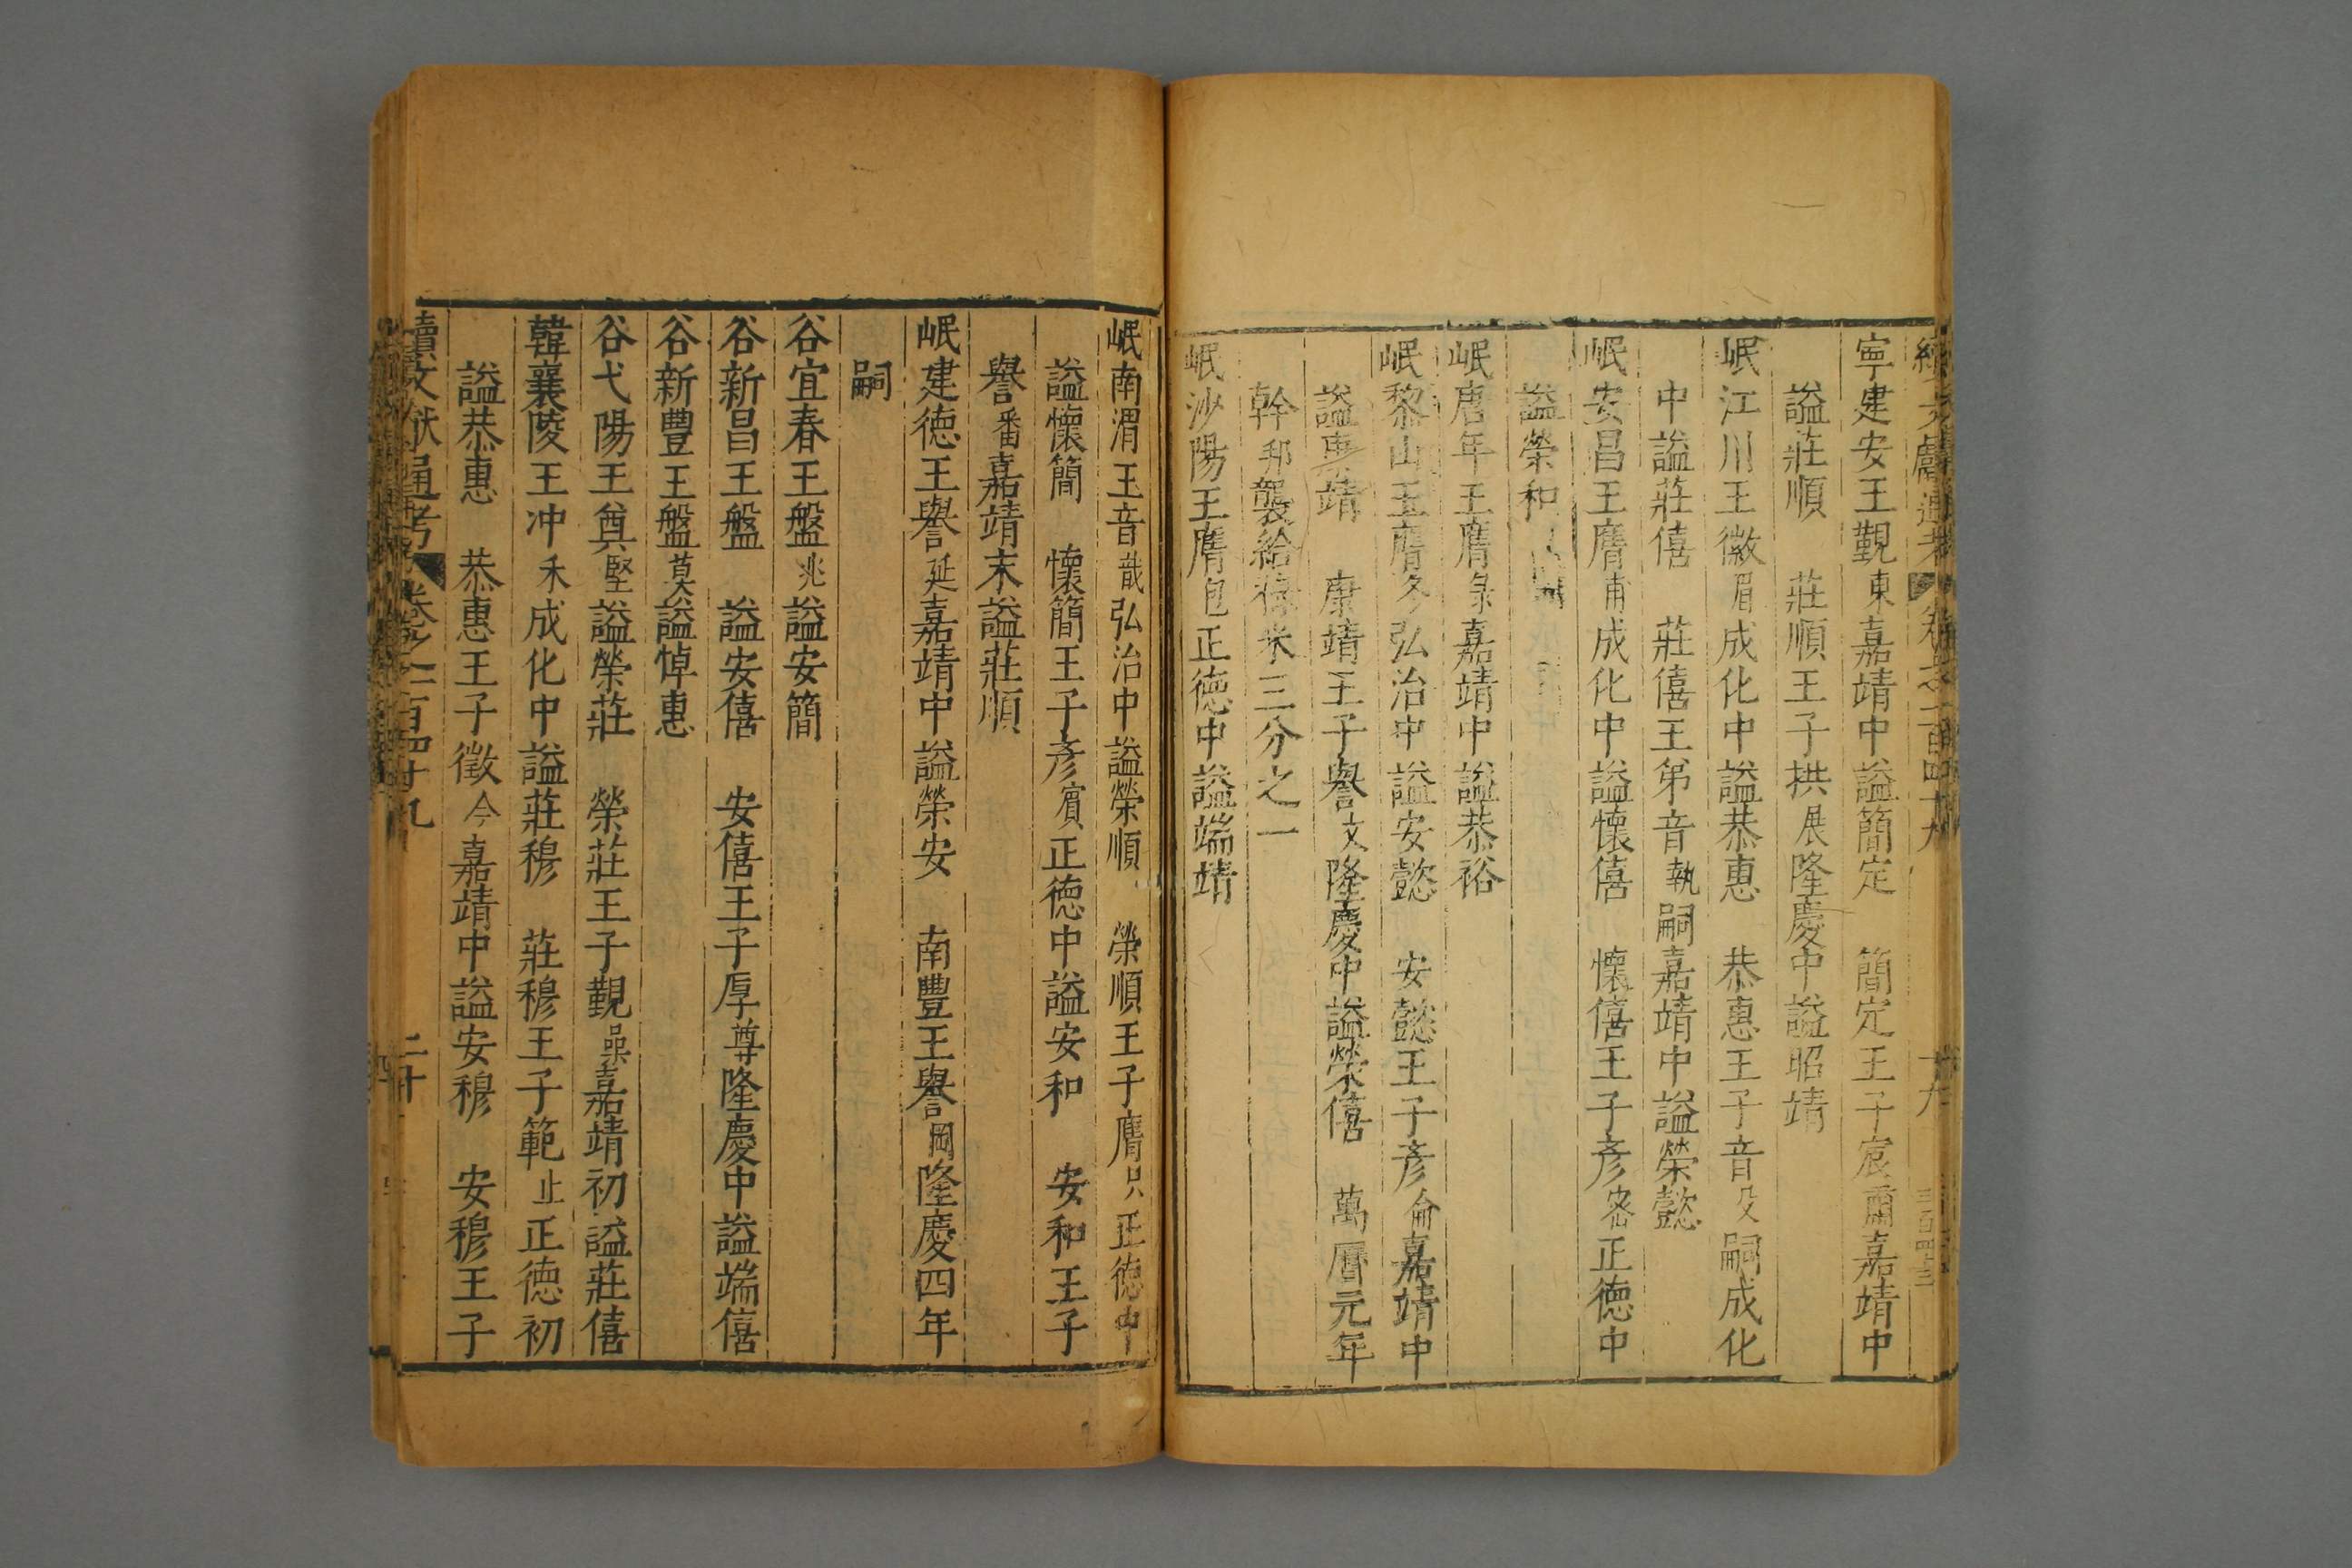 續文獻通考 卷之二百四十九 十九
寧建安王覲東嘉靖中謚簡定 簡定王子宸爾嘉靖中
謚莊順 莊順王子拱展隆慶中謚昭靖
岷江川王徽眉成化中謚恭惠 恭惠王子音殳嗣成化
中謚莊僖 莊僖王弟音執嗣嘉靖中謚榮懿
岷安昌王膺甫成化中謚懷僖 懷僖王子彥密正德中
謚榮和
岷唐年王膺彔嘉靖中謚恭裕
岷黎山王膺冬弘治中謚安懿 安懿王子彥侖嘉靖中
謚康靖 康靖王子譽文隆慶中謚榮僖 萬曆元年
幹邦襲給祿米三分之一
岷沙陽王膺包正德中謚端靖
岷南渭王音戠弘治中謚榮順 榮順王子膺只正德中
謚懷簡 懷簡王子彥賓正德中謚安和 安和王子
譽番嘉靖末謚莊順
岷建德王譽延嘉靖中謚榮安 南豐王譽岡隆慶四年
嗣
谷宜春王盤兆謚安簡
谷新昌王盤 謚安僖 安僖王子厚尊隆慶中謚端僖
谷新豐王盤莫謚悼惠
谷弋陽王奠堅謚榮莊 榮莊王子覲喿嘉靖初謚莊僖
韓襄陵王冲禾成化中謚莊穆 莊穆王子範止正德初
謚恭惠 恭惠王子徵今嘉靖中謚安穆 安穆王子
續文獻通考 卷之二百四十九 二十